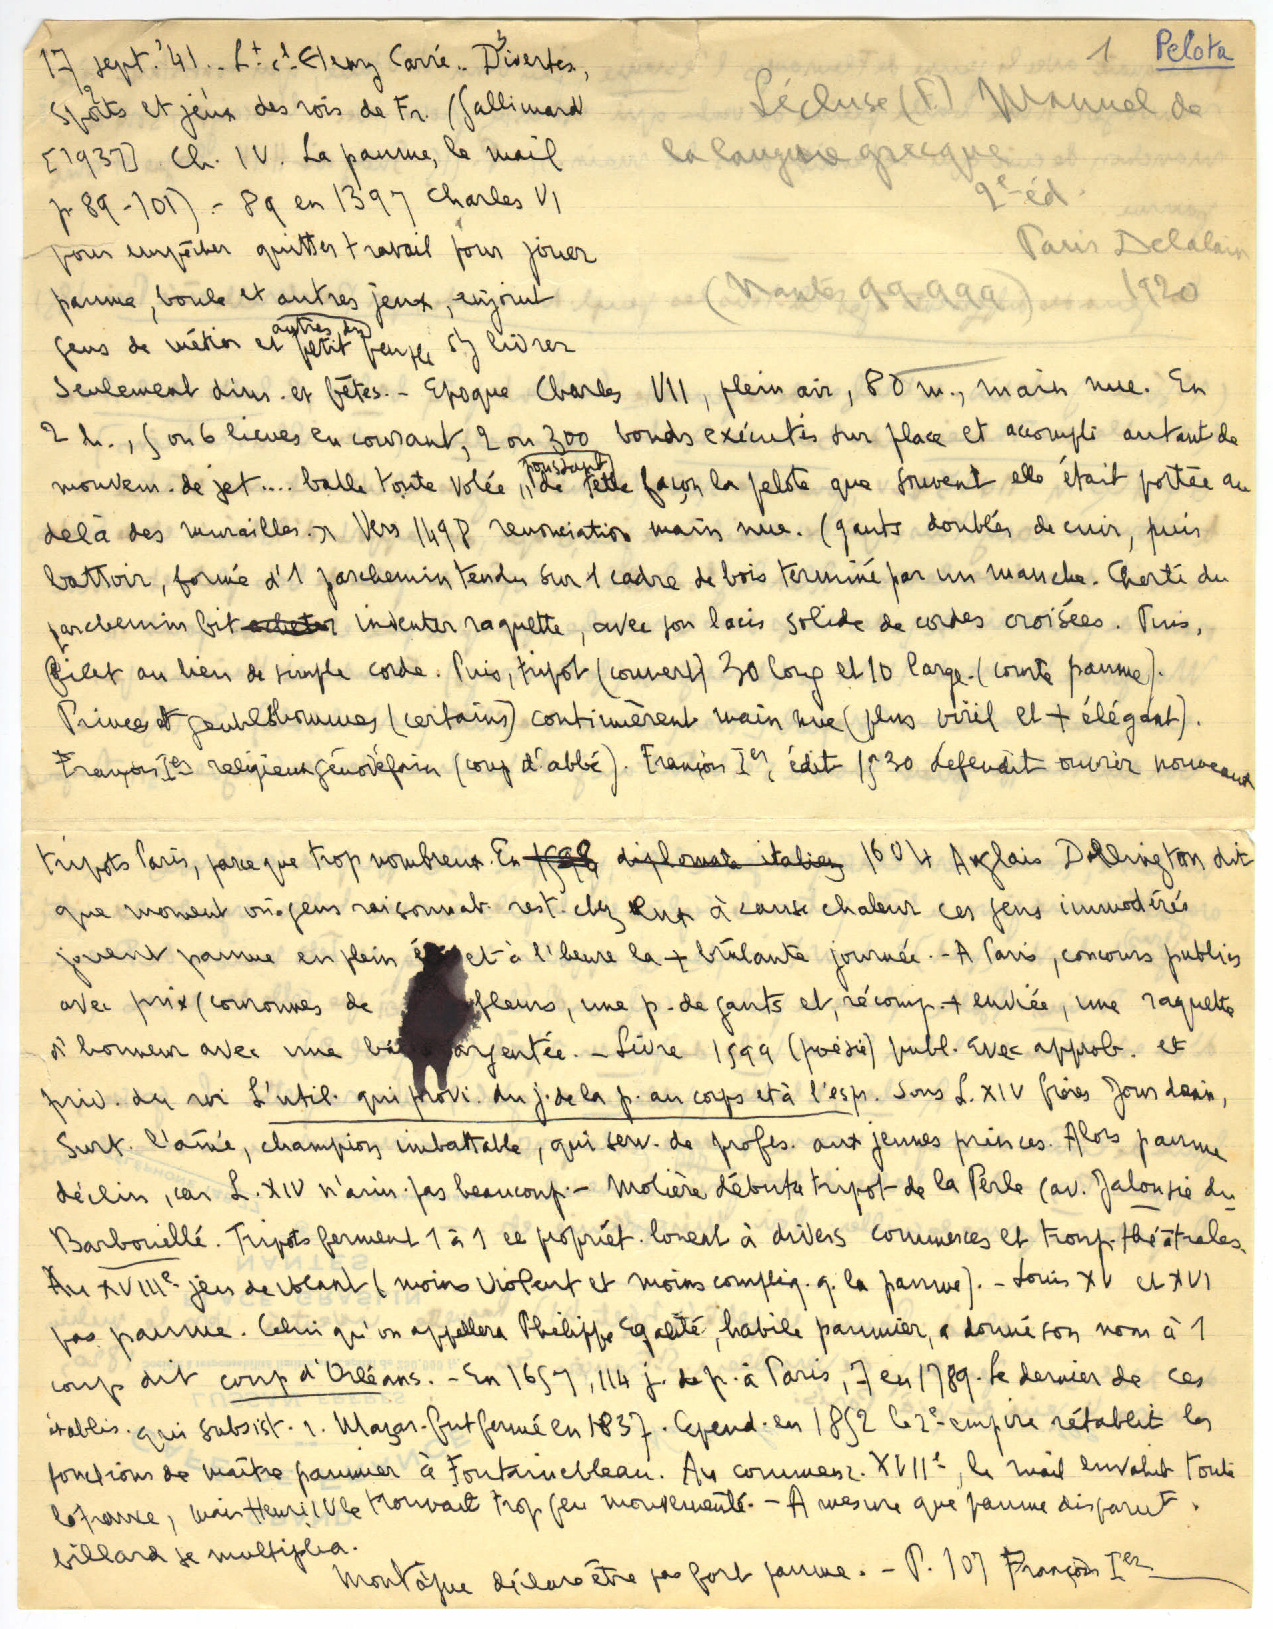 1 Pelota
17 sept. '41.- Lt cl Henry Carré.- Divertes,
spots et jeux des rois de Fr. (Gallimard
[1937] Ch. IV. La paume, le mail
p. 89-101).- 89 en 1397 Charles VI
pour empêcher quitter travail pour jouer
paume, boule et autres jeux, enjoint
gens de métier et autres du petit peuple s'y livrer
Lécluse (F.) Manuel de
la langue grecque
2e éd.
Paris Delalain
(Nantes 99999) 1920
seulement dim. et fêtes.- Epoque Charles VII, plein air, 80 m., main nue. En
2 h., 5 ou 6 lieues en courant, 2 ou 300 bonds exécutés sur place et accompli autant de
mouvem. de jet.... balle toute volée, "poussant de telle façon la pelote que souvent elle était portée au
delà des murailles." Vers 1498 renonciation main nue. (gants doublés de cuir, puis
battoir, formé d'1 parchemin tendu sur 1 cadre de bois terminé par un manche. Cherté du
parchemin fit inventer raquette, avec son lacis solide de cordes croisées. Puis,
filet au lieu de simple corde. Puis, tripot (couvert) 30 long et 10 large. (courte paume).
Princes et gentilshommes (certains) continuèrent main nue (plus viril et + élégant).
François Ier religieux génovéfain (coup d'abbé). François Ier, édit 1530 défendit ouvrir nouveaux
tripots Paris, parce que trop nombreux. En 1598 diplomate italien 1604 Anglais Dallington dit
que moment où gens raisonnab. rest. chez eux à cause chaleur ces gens immodérés
jouent paume en plein été et à l'heure la + brûlante journée.- A Paris, concours publics
avec prix (couronnes de fleurs, une p. de gants et, récomp. + enviée, une raquette
d'honneur avec une balle argentée.- Livre 1599 (poésie) publ. avec approb. et
priv. du roi L'util. qui provi. du j. de la p. au corps et à l'esp. Sous L. XIV frères Jourdain,
surt. l'aîné, champion imbattable, qui serv. de profes. aux jeunes princes. Alors paume
déclin, car L. XIV n'aim. pas beaucoup.- Molière débuta tripot de la Perle (av. Jalousie du
Barbouillé. Tripots ferment 1 à 1 et propriét. louent à divers commerces et troup. théâtrales.
Au XVIIIe jeu de volant (moins violent et moins compliq. q. la paume).- Louis XV et XVI
pas paume. Celui qu'on appellera Philippe Egalité, habile paumier, a donné son nom à 1
coup dit coup d'Orléans.- En 1657, 114 j. de p. à Paris, 7 en 1789. Le dernier de ces
établis. qui subsist. r. Mazar. fut fermé en 1837. Cepend. en 1852 le 2e empire rétablit les
fonctions de maître paumier à Fontainebleau. Au commenc. XVIIe, le mail envahit toute
la France, mais Henri IV le trouvait trop peu mouvementé.- A mesure que paume disparut,
billard se multiplia.
Montaigne déclare être pas fort paume.- P. 107 François Ier